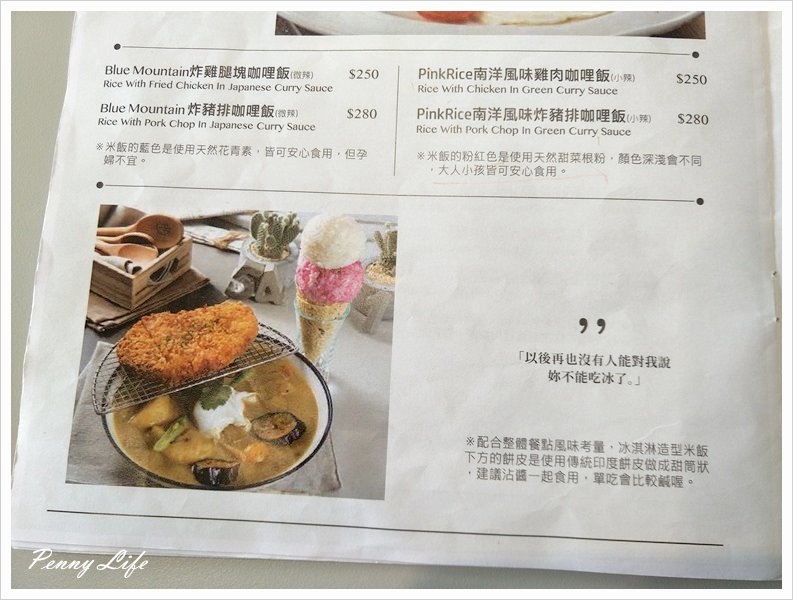 Blue Mountain炸雞腿塊咖哩飯(微辣) $250
Rice With Fried Chicken In Japanese Curry Sauce
Blue Mountain炸豬排咖哩飯(微辣) $280
Rice With Pork Chop In Japanese Curry Sauce
※米飯的藍色是使用天然花青素，皆可安心食用，但孕
婦不宜。
PinkRice南洋風味雞肉咖哩飯(小辣) $250
Rice With Chicken In Green Curry Sauce
PinkRice南洋風味炸豬排咖哩飯(小辣) $280
Rice With Pork Chop In Green Curry Sauce
※米飯的粉紅色是使用天然甜菜根粉，顏色深淺會不同
，大人小孩皆可安心食用。
「以後再也沒有人能對我說
妳不能吃冰了。」
※配合整體餐點風味考量，冰淇淋造型米飯
下方的餅皮是使用傳統印度餅皮做成甜筒狀
，建議沾醬一起食用，單吃會比較鹹喔。
Penny Life